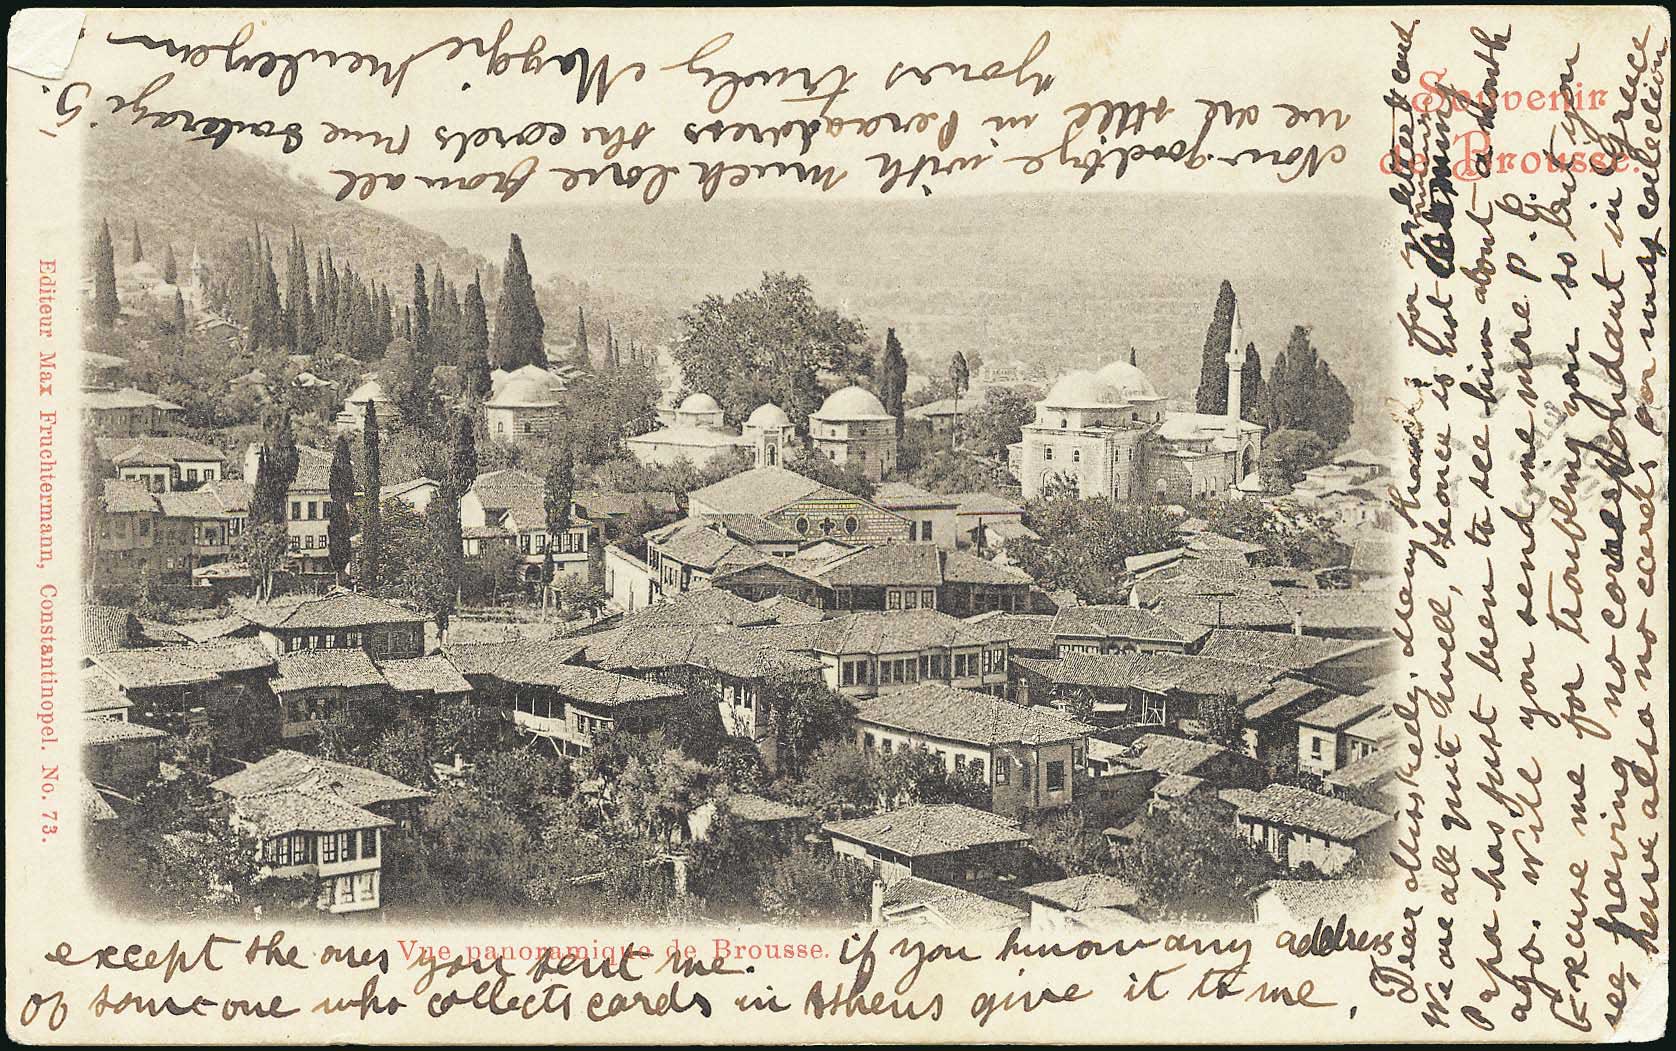 Souvenir
de Brousse.
Editeur Max Fruchtermann, Constantinopel. No. 73.
Vue panoramique de Brousse.
Dear Miss Kelly. Many thanks for yr letter & card
We are all quite well, Leonce is not
Papa has just been to see him about a month
ago. Will you send me more P. P. C.
Excuse me for troubling you so but you
see, having no correspondant in Greece
have also no cards for may collection
except the ones you sent me. if you know any address
of someone who collects cards in Athens give it to me.
Now goodbye with much love from all
we are still in Pera address the cards rue 5.
yours truly Maggie